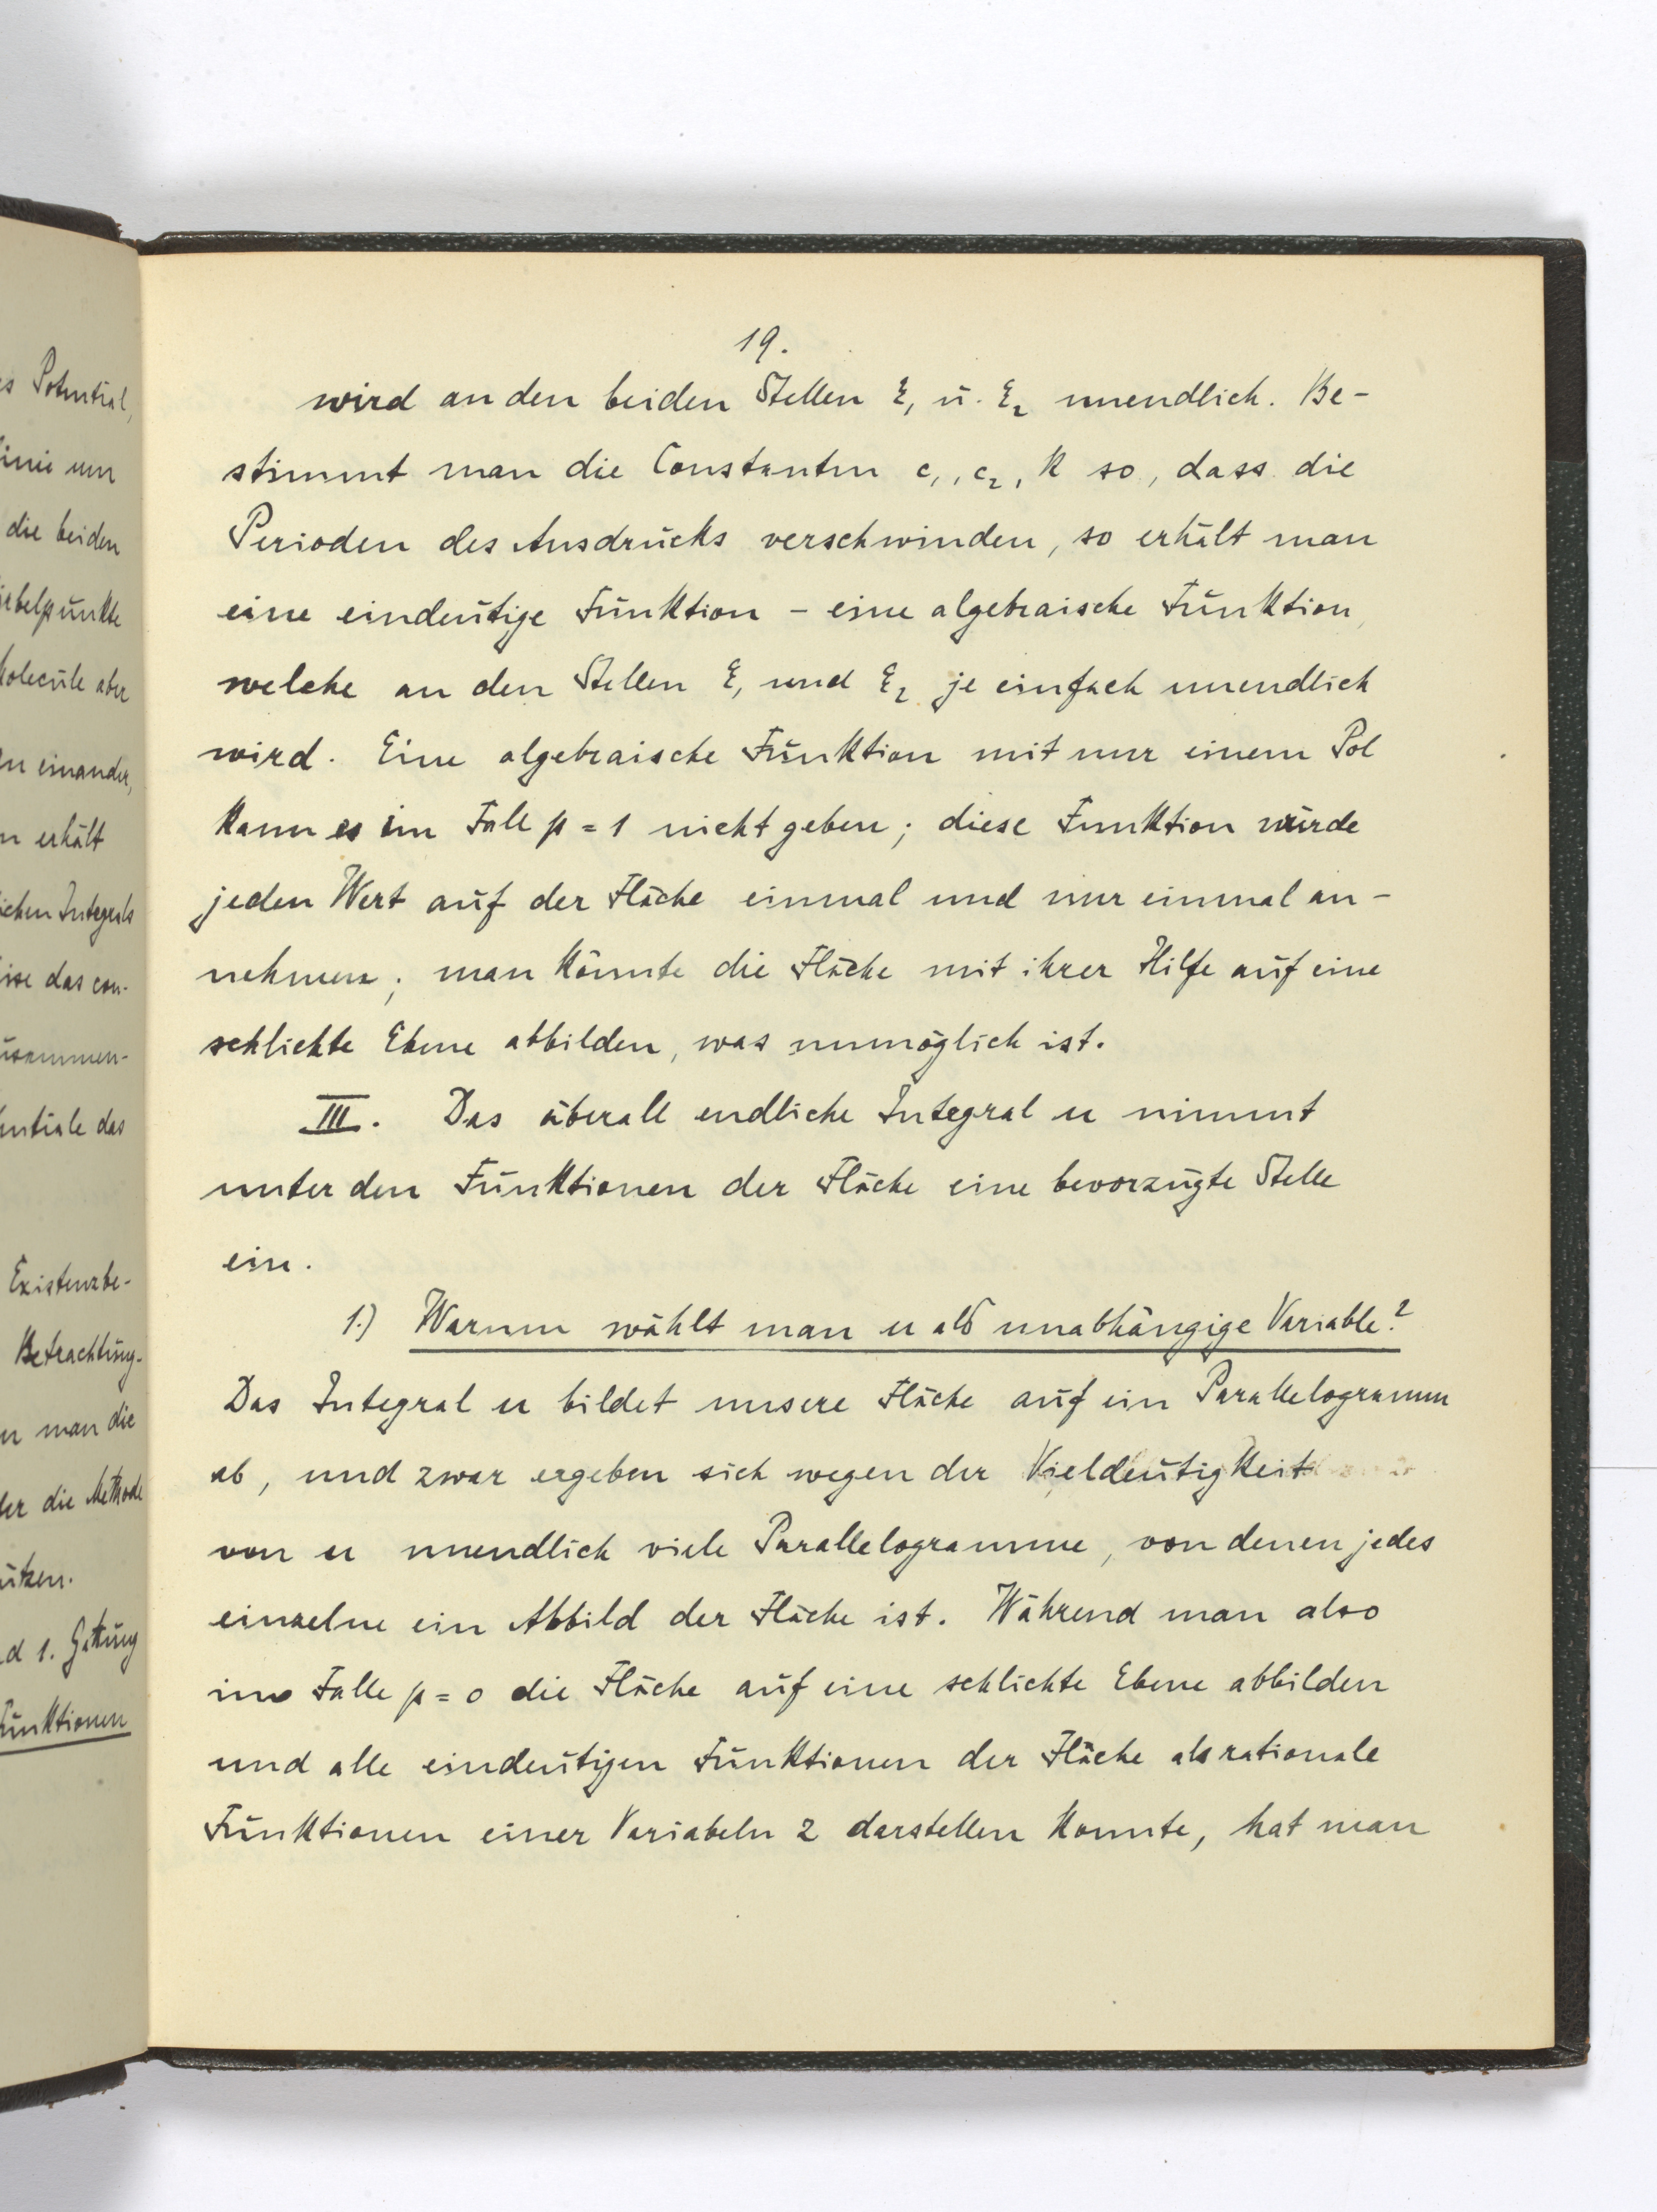 s Potential,
inie um
die beiden
irbelpunkte
Molecüle aber
zu einander,
n erhält
ichen Integrals
ise das con-
usammen-
entiale das
Existenzbe-
Betrachtung-
n man die
der die Methode
ützen.
d 1. Gattung
Funktionen
19.
wird an den beiden Stellen ξ₁ u. ξ₂ unendlich. Be-
stimmt man die Constanten c₁, c₂, k so, dass die
Perioden des Ausdrucks verschwinden, so erhält man
eine eindeutige Funktion – eine algebraische Funktion,
welche an den Stellen ξ₁ und ξ₂ je einfach unendlich
wird. Eine algebraische Funktion mit nur einem Pol
kann es im Fall p = 1 nicht geben; diese Funktion würde
jeden Wert auf der Fläche einmal und nur einmal an-
nehmen; man könnte die Fläche mit ihrer Hilfe auf eine
schlichte Ebene abbilden, was unmöglich ist.
III. Das überall endliche Integral u nimmt
unter den Funktionen der Fläche eine bevorzugte Stelle
ein.
1.) Warum wählt man u als unabhängige Variable?
Das Integral u bildet unsere Fläche auf ein Parallelogramm
ab, und zwar ergeben sich wegen der Vieldeutigkeit
von u unendlich viele Parallelogramme, von denen jedes
einzelne ein Abbild der Fläche ist. Während man also
im Falle p = 0 die Fläche auf eine schlichte Ebene abbilden
und alle eindeutigen Funktionen der Fläche als rationale
Funktionen einer Variabeln z darstellen konnte, hat man